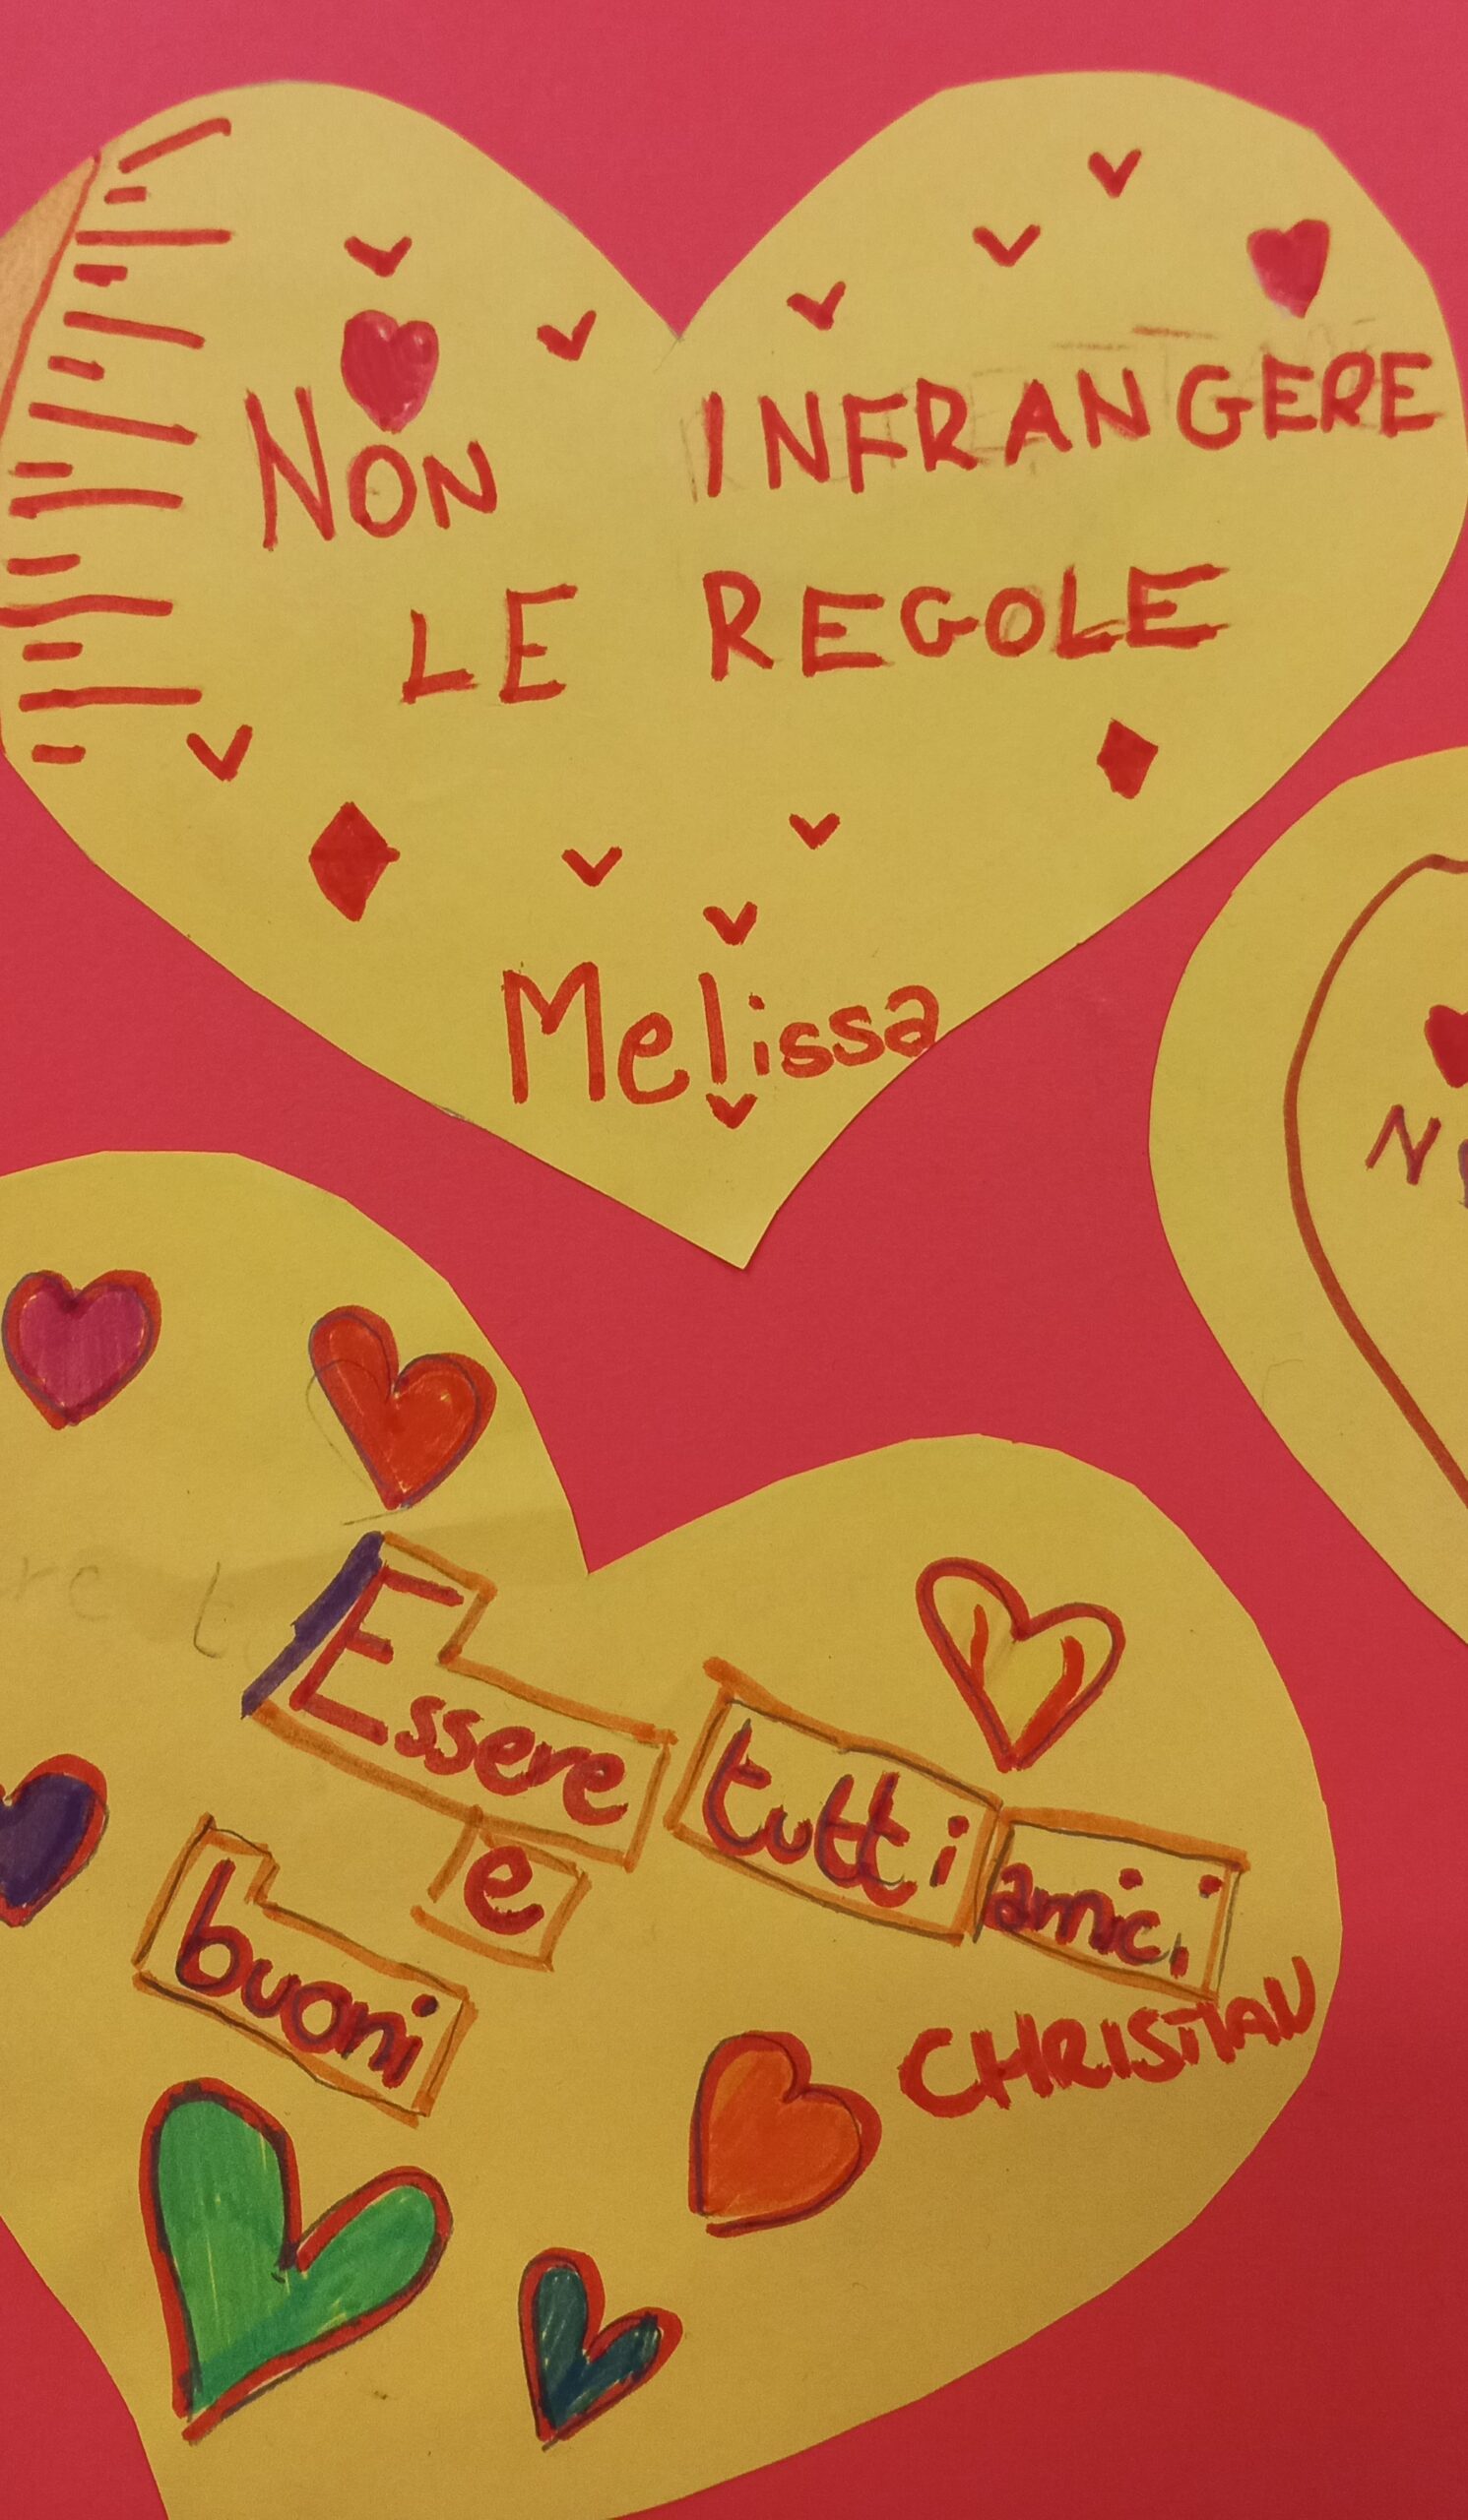 NON INFRANGERE
LE REGOLE
Melissa
Essere tutti amici
e
buoni
CHRISTIAN